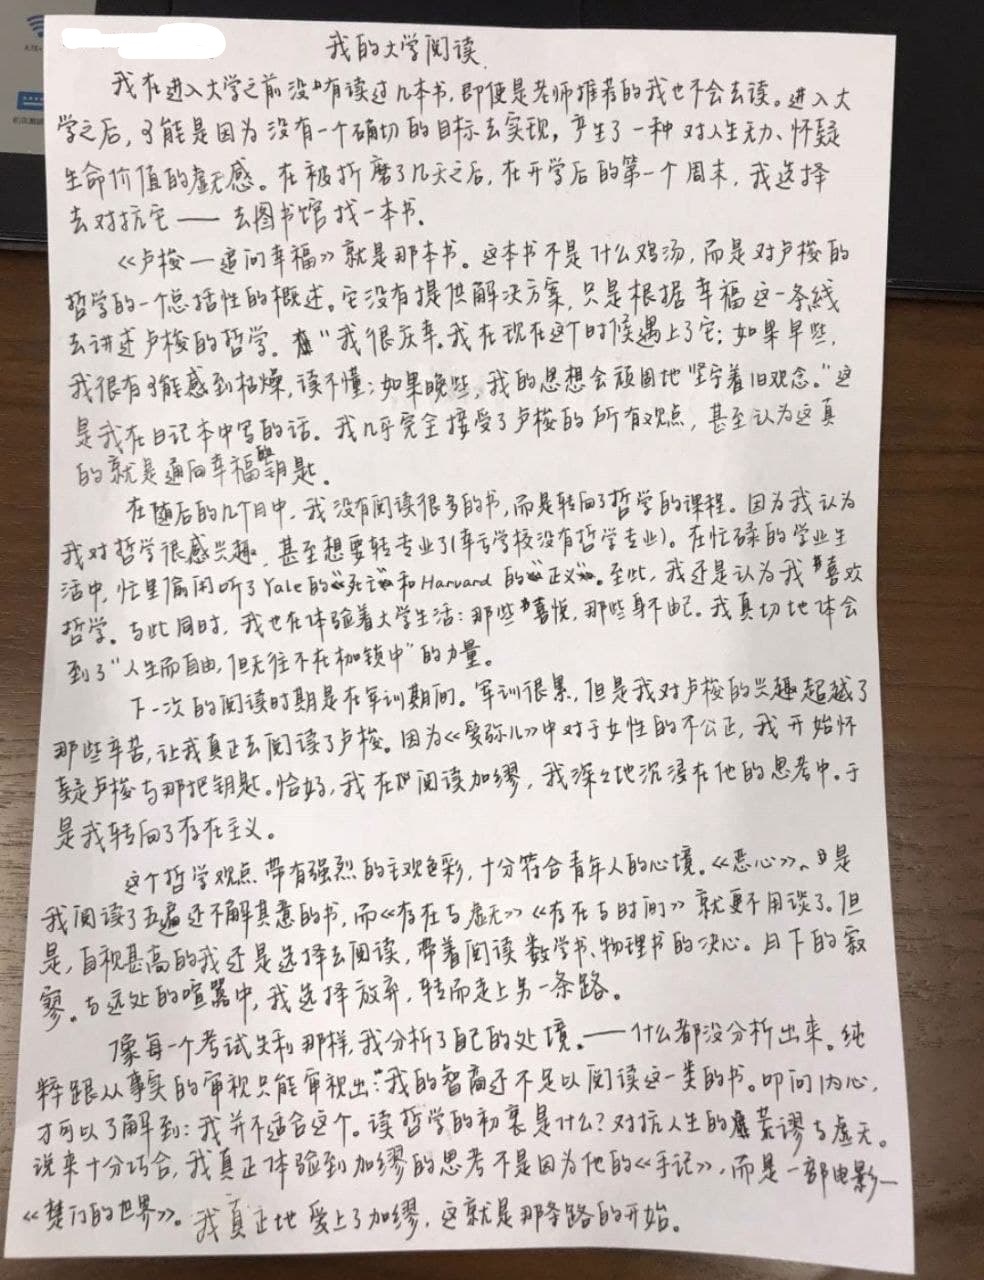 我的大学阅读
我在进入大学之前没有读过几本书,即便是老师推荐的我也不会去读。进入大
学之后,可能是因为没有一个确切的目标去实现,产生了一种对人生无力、怀疑
生命价值的虚无感。在被折磨了几天之后,在开学后的第一个周末,我选择
去对抗它——去图书馆找一本书.
《卢梭—追问幸福》就是那本书。这本书不是什么鸡汤,而是对卢梭的
哲学的一个总括性的概述。它没有提供解决方案,只是根据幸福这一条线
去讲述卢梭的哲学。"我很庆幸我在现在这个时候遇上了它;如果早些,
我很有可能感到枯燥,读不懂;如果晚些,我的思想会顽固地坚守着旧观念。"这
是我在日记本中写的话。我几乎完全接受了卢梭的所有观点,甚至认为这真
的就是通向幸福的钥匙。
在随后的几个月中,我没有阅读很多的书,而是转向了哲学的课程。因为我认为
我对哲学很感兴趣,甚至想要转专业了(幸亏学校没有哲学专业)。在忙碌的学业生
活中,忙里偷闲听了Yale的"死亡"和Harvard的"正义"。至此,我还是认为我喜欢
哲学。与此同时,我也在体验着大学生活:那些喜悦,那些身不由己。我真切地体会
到了"人生而自由,但无往不在枷锁中"的力量。
下一次的阅读时期是在军训期间。军训很累,但是我对卢梭的兴趣超越了
那些辛苦,让我真正去阅读了卢梭。因为《爱弥儿》中对于女性的不公正,我开始怀
疑卢梭与那把钥匙。恰好,我在阅读加缪,我深々地沉浸在他的思考中。于
是我转向了存在主义。
这个哲学观点带有强烈的主观色彩,十分符合青年人的心境。《恶心》、是
我阅读了五遍还不解其意的书,而《存在与虚无》《存在与时间》就更不用谈了。但
是,自视甚高的我还是选择去阅读,带着阅读数学书、物理书的决心。月下的寂
寥。与远处的喧嚣中,我选择放弃,转而走上另一条路。
像每一个考试失利那样,我分析了自己的处境。——什么都没分析出来。纯
粹跟从事实的审视只能审视出:我的智商还不足以阅读这一类的书。叩问内心,
才可以了解到:我并不适合这个。读哲学的初衷是什么?对抗人生的荒谬与虚无。
说来十分巧合,我真正体验到加缪的思考不是因为他的《手记》,而是一部电影—
《楚门的世界》。我真正地爱上了加缪,这就是那条路的开始。